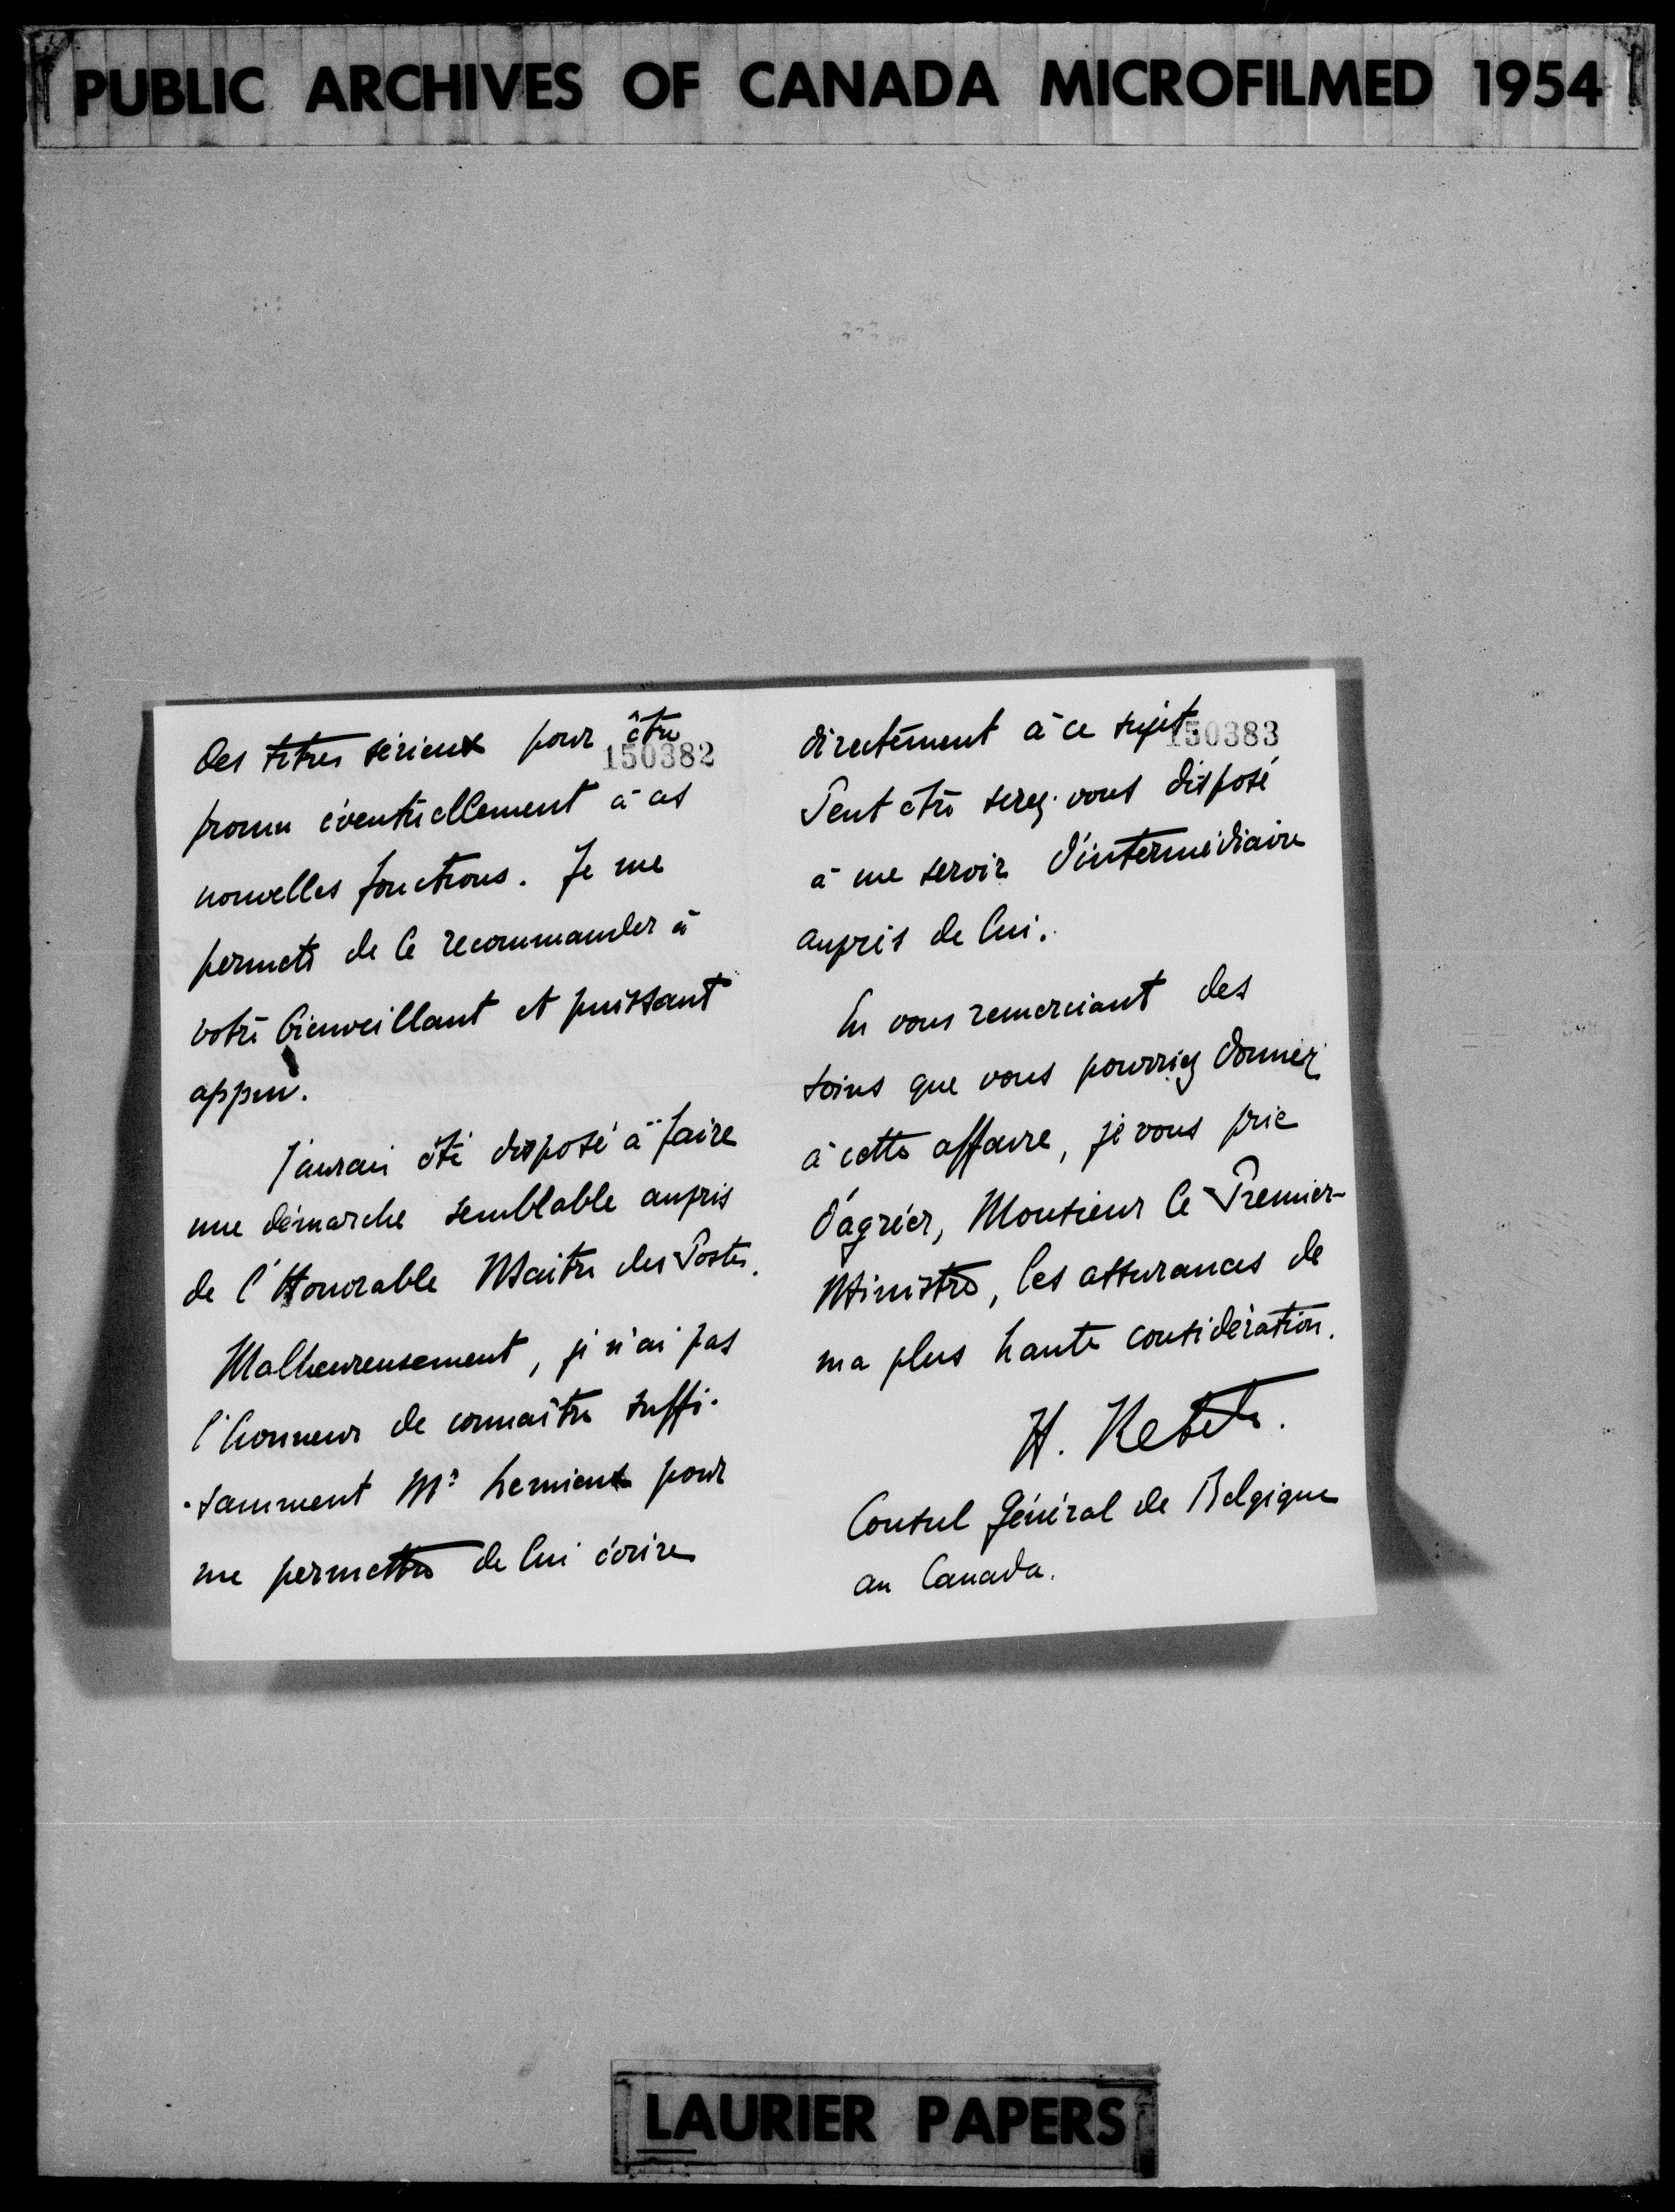 PUBLIC ARCHIVES OF CANADA MICROFILMED 1954
des titres sérieux pour être
150382
promu éventuellement à ces
nouvelles fonctions. Je me
permets de le recommander à
votre bienveillant et puissant
appui.
J'aurai été disposé à faire
une démarche semblable auprès
de l'Honorable Maître des Postes.
Malheureusement, je n'ai pas
l'honneur de connaître suffi-
-samment Mr Lemieux pour
me permettre de lui écrire
directement à ce sujet.
150383
Peut être serez-vous disposé
à me servir d'intermédiaire
auprès de lui.
En vous remerciant des
soins que vous pourriez donner
à cette affaire, je vous prie
d'agréer, Monsieur le Premier-
Ministre, les assurances de
ma plus haute considération.
H. Ketels.
Consul Général de Belgique
au Canada.
LAURIER PAPERS